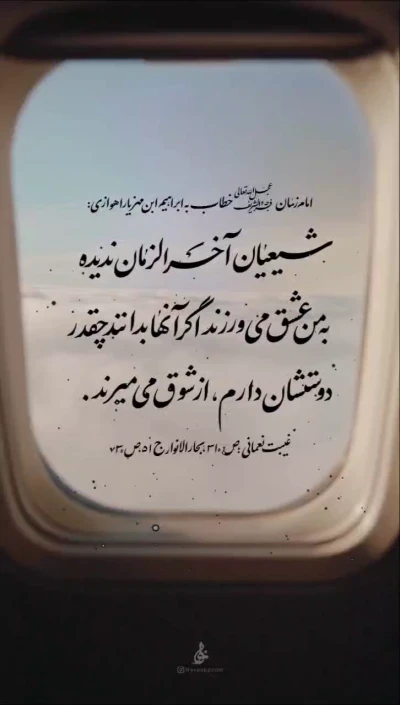 امام زمان عجل الله تعالی فرجه الشریف خطاب به ابراهیم ابن مهزیار اهوازی:
شیعیان آخرالزمان ندیده
به من عشق می ورزند اگر آنها بدانند چقدر
دوستشان دارم، از شوق می میرند.
غیبت نعمانی ص۳۱۰، بحارالانوار ج ۵۱ ص۷۳